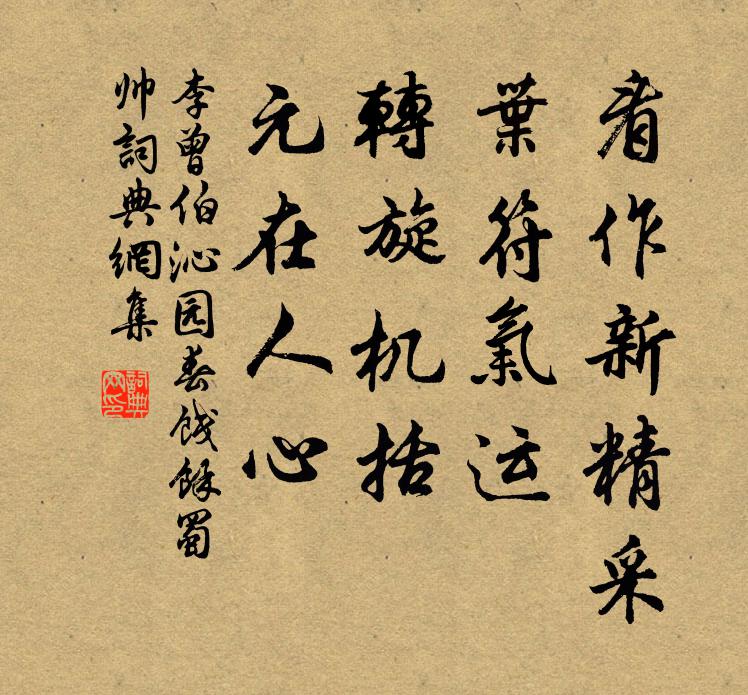 看作新精采
葉符氣运
轉旋机括
元在人心
李曾伯沁园春饯余蜀
帅詞典網集
詞典网印